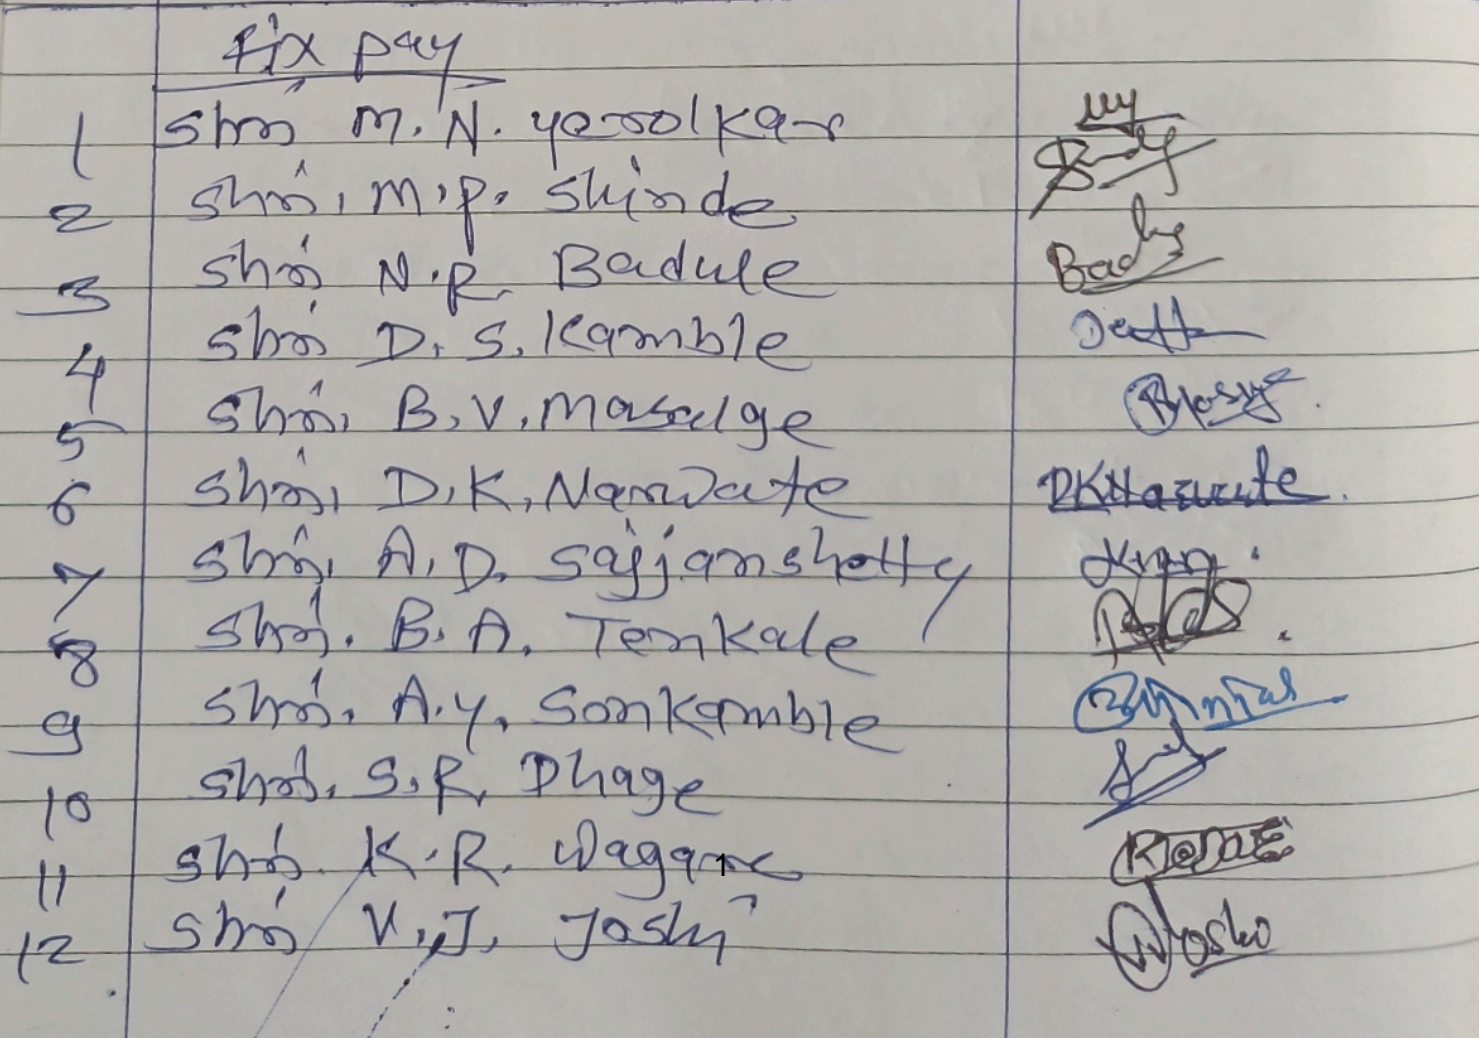 Fix pay
1 Shri M. N. Yerolkar
2 Shri, M. P. Shinde
3 Shri N. R. Badule
4 Shri D. S. Kamble Datta
5 Shri, B. V. Masalge
6 Shri, D. K. Narwate DKNarwate.
7 Shri, A. D. Sajjanshetty
8 Shri. B. A. Tenkale
9 Shri. A. Y. Sonkamble
10 Shri. S. R. Dhage
11 Shri. K. R. Wagare
12 Shri V. J. Joshi